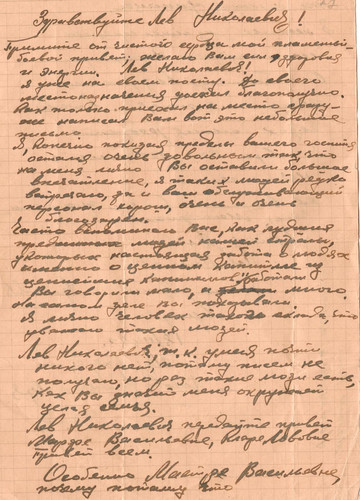 27
Здравствуйте Лев Николаевич!
Примите от чистого сердца мой пламенный
боевой привет, желаю Вам сил здоровья
и энергии. Лев Николаевич!
Я уже на своем посту. До своего
местоназначения доехал благополучно.
Как только приехал на место сразу-
же написал Вам вот это небольшое
письмо.
Я, конечно покидая пределы вашего госпит
остался очень довольным так, что
на меня лично Вы оставили большое
впечатление, я таких людей редко
встречаю, да и ваш обслуживающий
персонал хорош, очень и очень
я благодарен.
Часто вспоминаю Вас, как лучших
людей нашей страны,
у которых настоящая забота о людях
именно о ценном капитале из
ценнейших капиталов, работали
Вы говорили мало, а много
на самом деле вы показывали.
Я лично человек такого склада, что
уважаю таких людей.
Лев Николаевич, т.к. у меня почти
никого нет, потому писем не
получаю, но раз такие люди есть
как Вы значит меня окружает
целая семья.
Лев Николаевич передайте привет
Марфе Васильевне, Кларе Львовне
привет всем.
Особенно Марфе Васильевне,
почему потому что